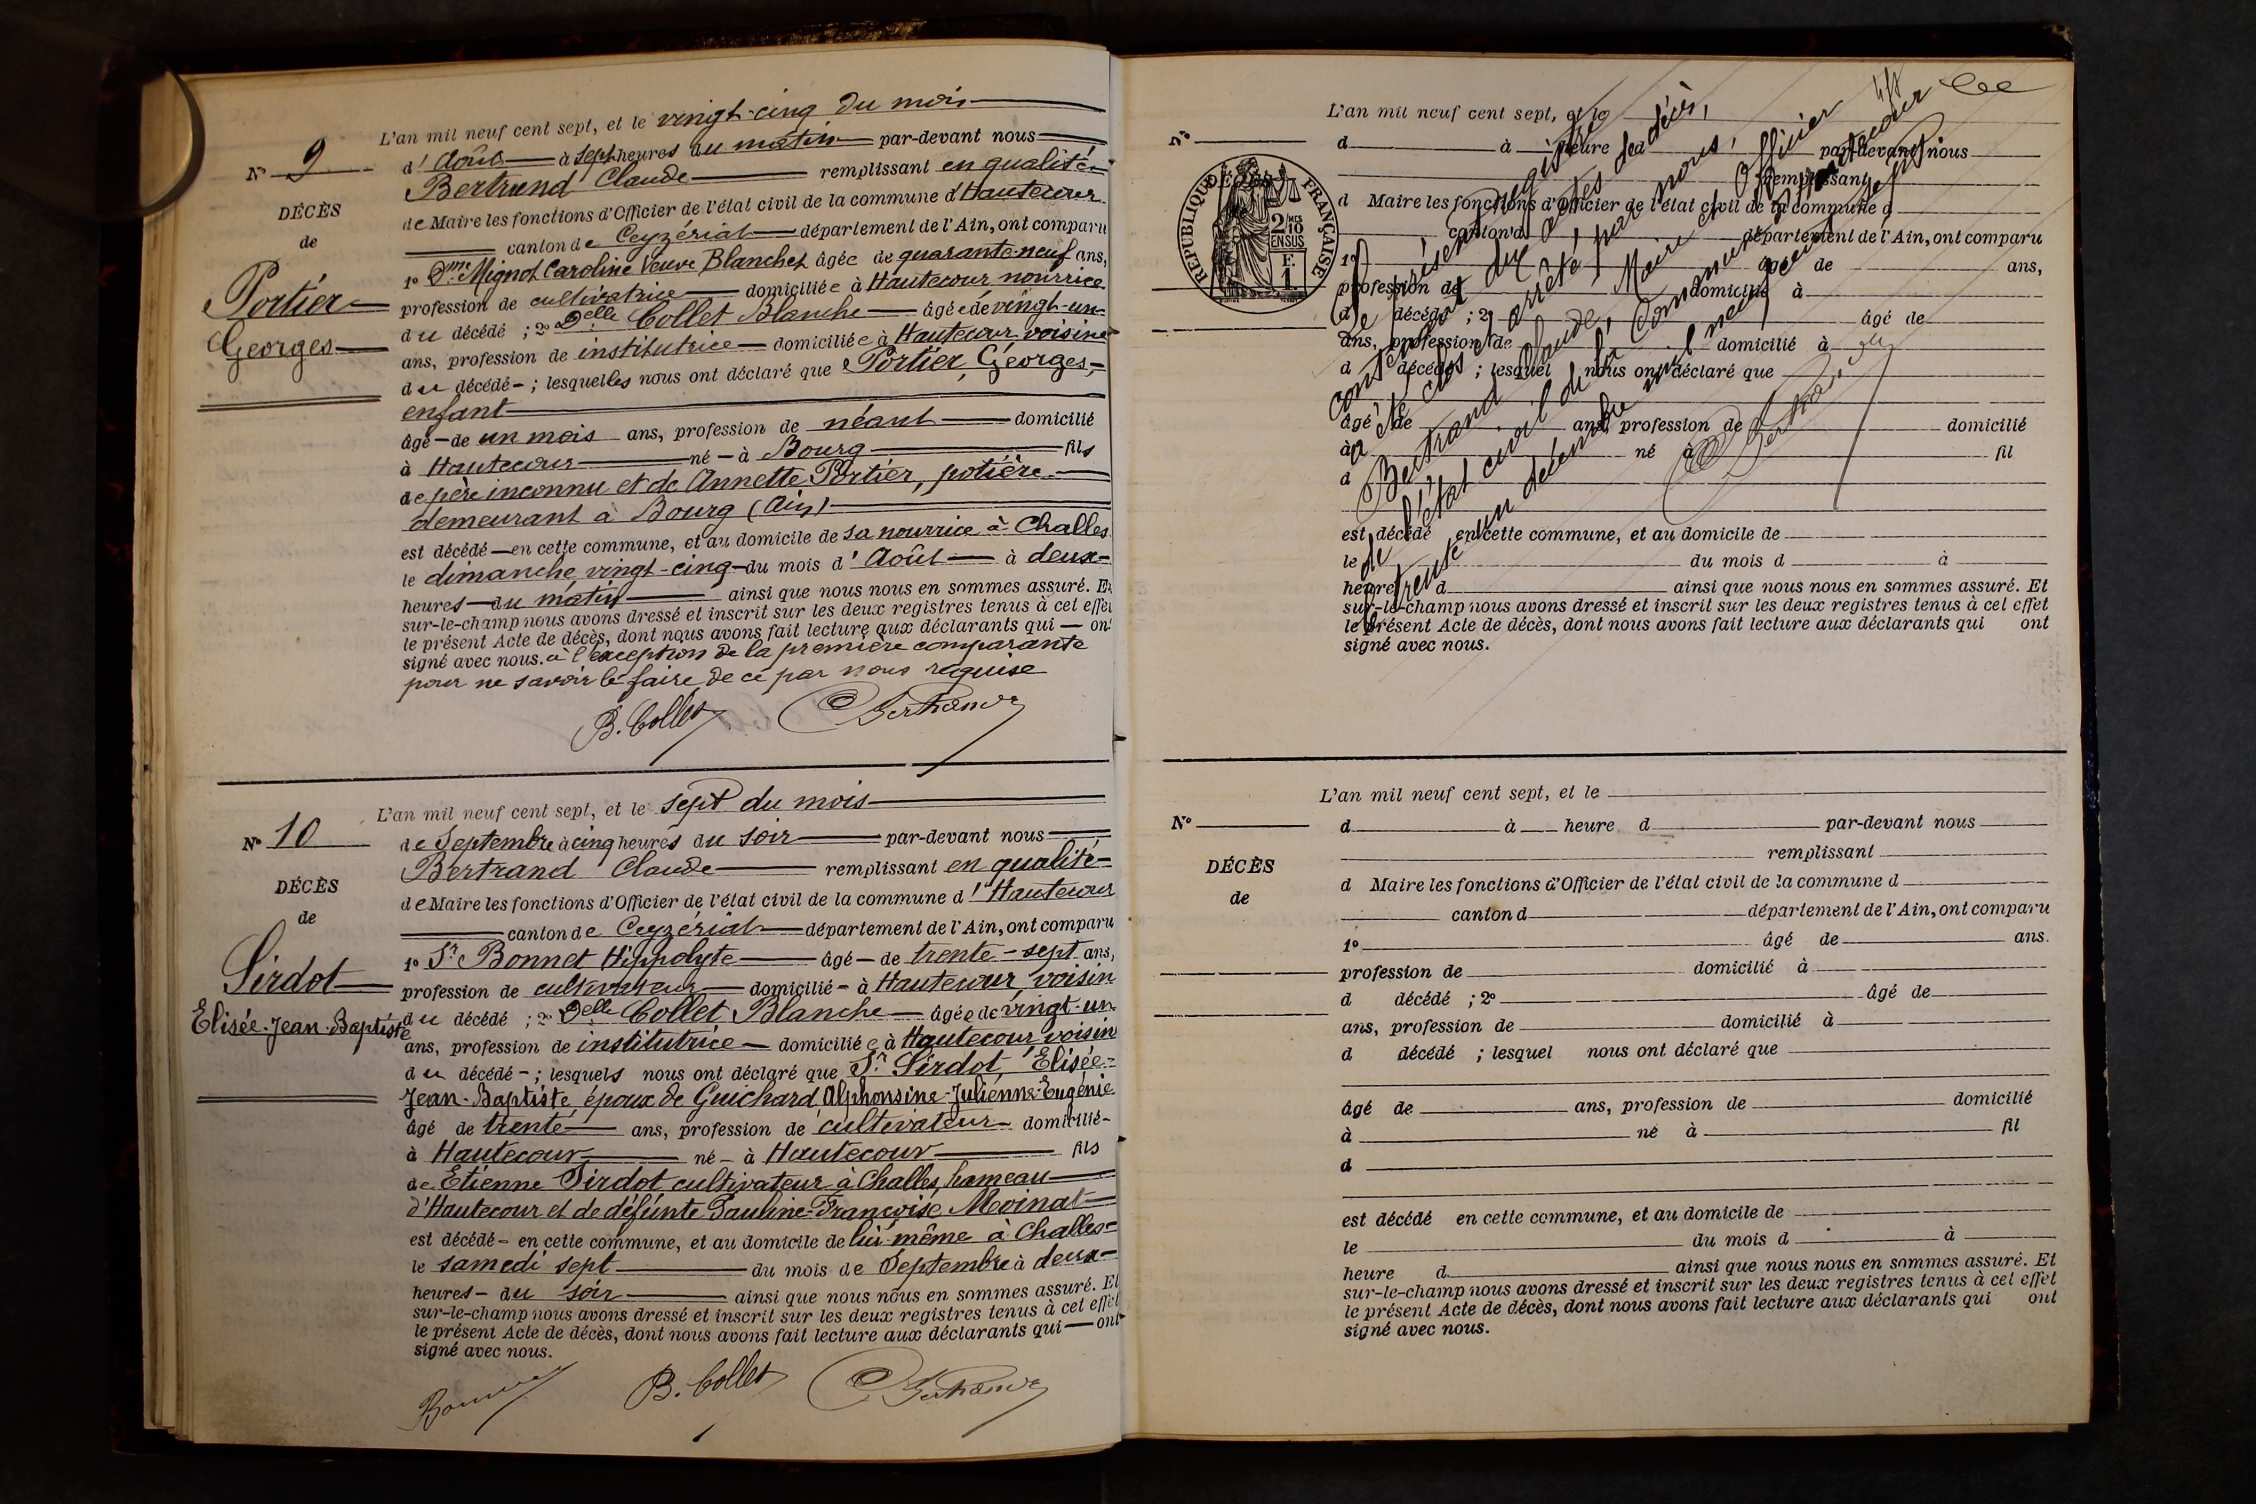 L'an mil neuf cent sept, et le vingt-cinq du mois
N° 9
d'Août à sept heures du matin par-devant nous
Bertrand Claude remplissant en qualité
DÉCÈS
de Maire les fonctions d'Officier de l'état civil de la commune d'Hautecour
de
canton de Ceyzériat département de l'Ain, ont comparu
1° Dme Mignot Caroline Veuve Blanchet âgée de quarante-neuf ans,
Portier
profession de cultivatrice domiciliée à Hautecour nourrice
Georges
du décédé ; 2° Delle Collet Blanche âgée de vingt-un
ans, profession de institutrice domiciliée à Hautecour, voisine
du décédé ; lesquelles nous ont déclaré que Portier, Georges,
enfant
âgé de un mois ans, profession de néant domicilié
à Hautecour né à Bourg fils
de père inconnu et de Annette Portier, potière
demeurant à Bourg (Ain)
est décédé en cette commune, et au domicile de sa nourrice à Challes
le dimanche vingt-cinq du mois d'Août à deux
heures du matin ainsi que nous nous en sommes assuré. Et
sur-le-champ nous avons dressé et inscrit sur les deux registres tenus à cet effet
le présent Acte de décès, dont nous avons fait lecture aux déclarants qui ont
signé avec nous. à l'exception de la première comparante
pour ne savoir le faire de ce par nous requise
B. Collet C Bertrand
L'an mil neuf cent sept, et le sept du mois
N° 10
de Septembre à cinq heures du soir par-devant nous
Bertrand Claude remplissant en qualité
DÉCÈS
de Maire les fonctions d'Officier de l'état civil de la commune d'Hautecour
de
canton de Ceyzériat département de l'Ain, ont comparu
1° Sr Bonnet Hippolyte âgé de trente-sept ans,
Sirdot
profession de cultivateur domicilié à Hautecour, voisin
Elisée-Jean-Baptiste
du décédé ; 2° Delle Collet Blanche âgée de vingt-un
ans, profession de institutrice domiciliée à Hautecour voisine
du décédé ; lesquels nous ont déclaré que Sr Sirdot, Elisée-
Jean-Baptiste, époux de Guichard Alphonsine-Julienne-Eugénie
âgé de trente ans, profession de cultivateur domicilié
à Hautecour né à Hautecour fils
de Etienne Sirdot cultivateur à Challes, hameau
d'Hautecour et de défunte Pauline-Françoise Moinat
est décédé en cette commune, et au domicile de lui-même à Challes
le samedi sept du mois de Septembre à deux
heures du soir ainsi que nous nous en sommes assuré. Et
sur-le-champ nous avons dressé et inscrit sur les deux registres tenus à cet effet
le présent Acte de décès, dont nous avons fait lecture aux déclarants qui ont
signé avec nous.
Bonnet B. Collet C Bertrand
L'an mil neuf cent sept, et le
N°
d à heure d par-devant nous
remplissant
RÉPUBLIQUE FRANÇAISE
2/10 EN SUS
F. 1
d Maire les fonctions d'Officier de l'état civil de la commune d
canton d département de l'Ain, ont comparu
1° âgé de ans,
profession de domicilié à
d décédé ; 2° âgé de
ans, profession de domicilié à
d décédé ; lesquel nous ont déclaré que
âgé de ans, profession de domicilié
à né à fil
d
est décédé en cette commune, et au domicile de
le du mois d à
heure d ainsi que nous nous en sommes assuré. Et
sur-le-champ nous avons dressé et inscrit sur les deux registres tenus à cet effet
le présent Acte de décès, dont nous avons fait lecture aux déclarants qui ont
signé avec nous.
Le présent registre
contenant dix actes de décès,
a été clos et arrêté par nous,
Bertrand Claude, Maire et Officier
de l'état civil de la Commune d'Hautecour le
trente un décembre mil neuf cent sept.
C Bertrand
L'an mil neuf cent sept, et le
N°
d à heure d par-devant nous
remplissant
DÉCÈS
d Maire les fonctions d'Officier de l'état civil de la commune d
de
canton d département de l'Ain, ont comparu
1° âgé de ans.
profession de domicilié à
d décédé ; 2° âgé de
ans, profession de domicilié à
d décédé ; lesquel nous ont déclaré que
âgé de ans, profession de domicilié
à né à fil
d
est décédé en cette commune, et au domicile de
le du mois d à
heure d ainsi que nous nous en sommes assuré. Et
sur-le-champ nous avons dressé et inscrit sur les deux registres tenus à cet effet
le présent Acte de décès, dont nous avons fait lecture aux déclarants qui ont
signé avec nous.